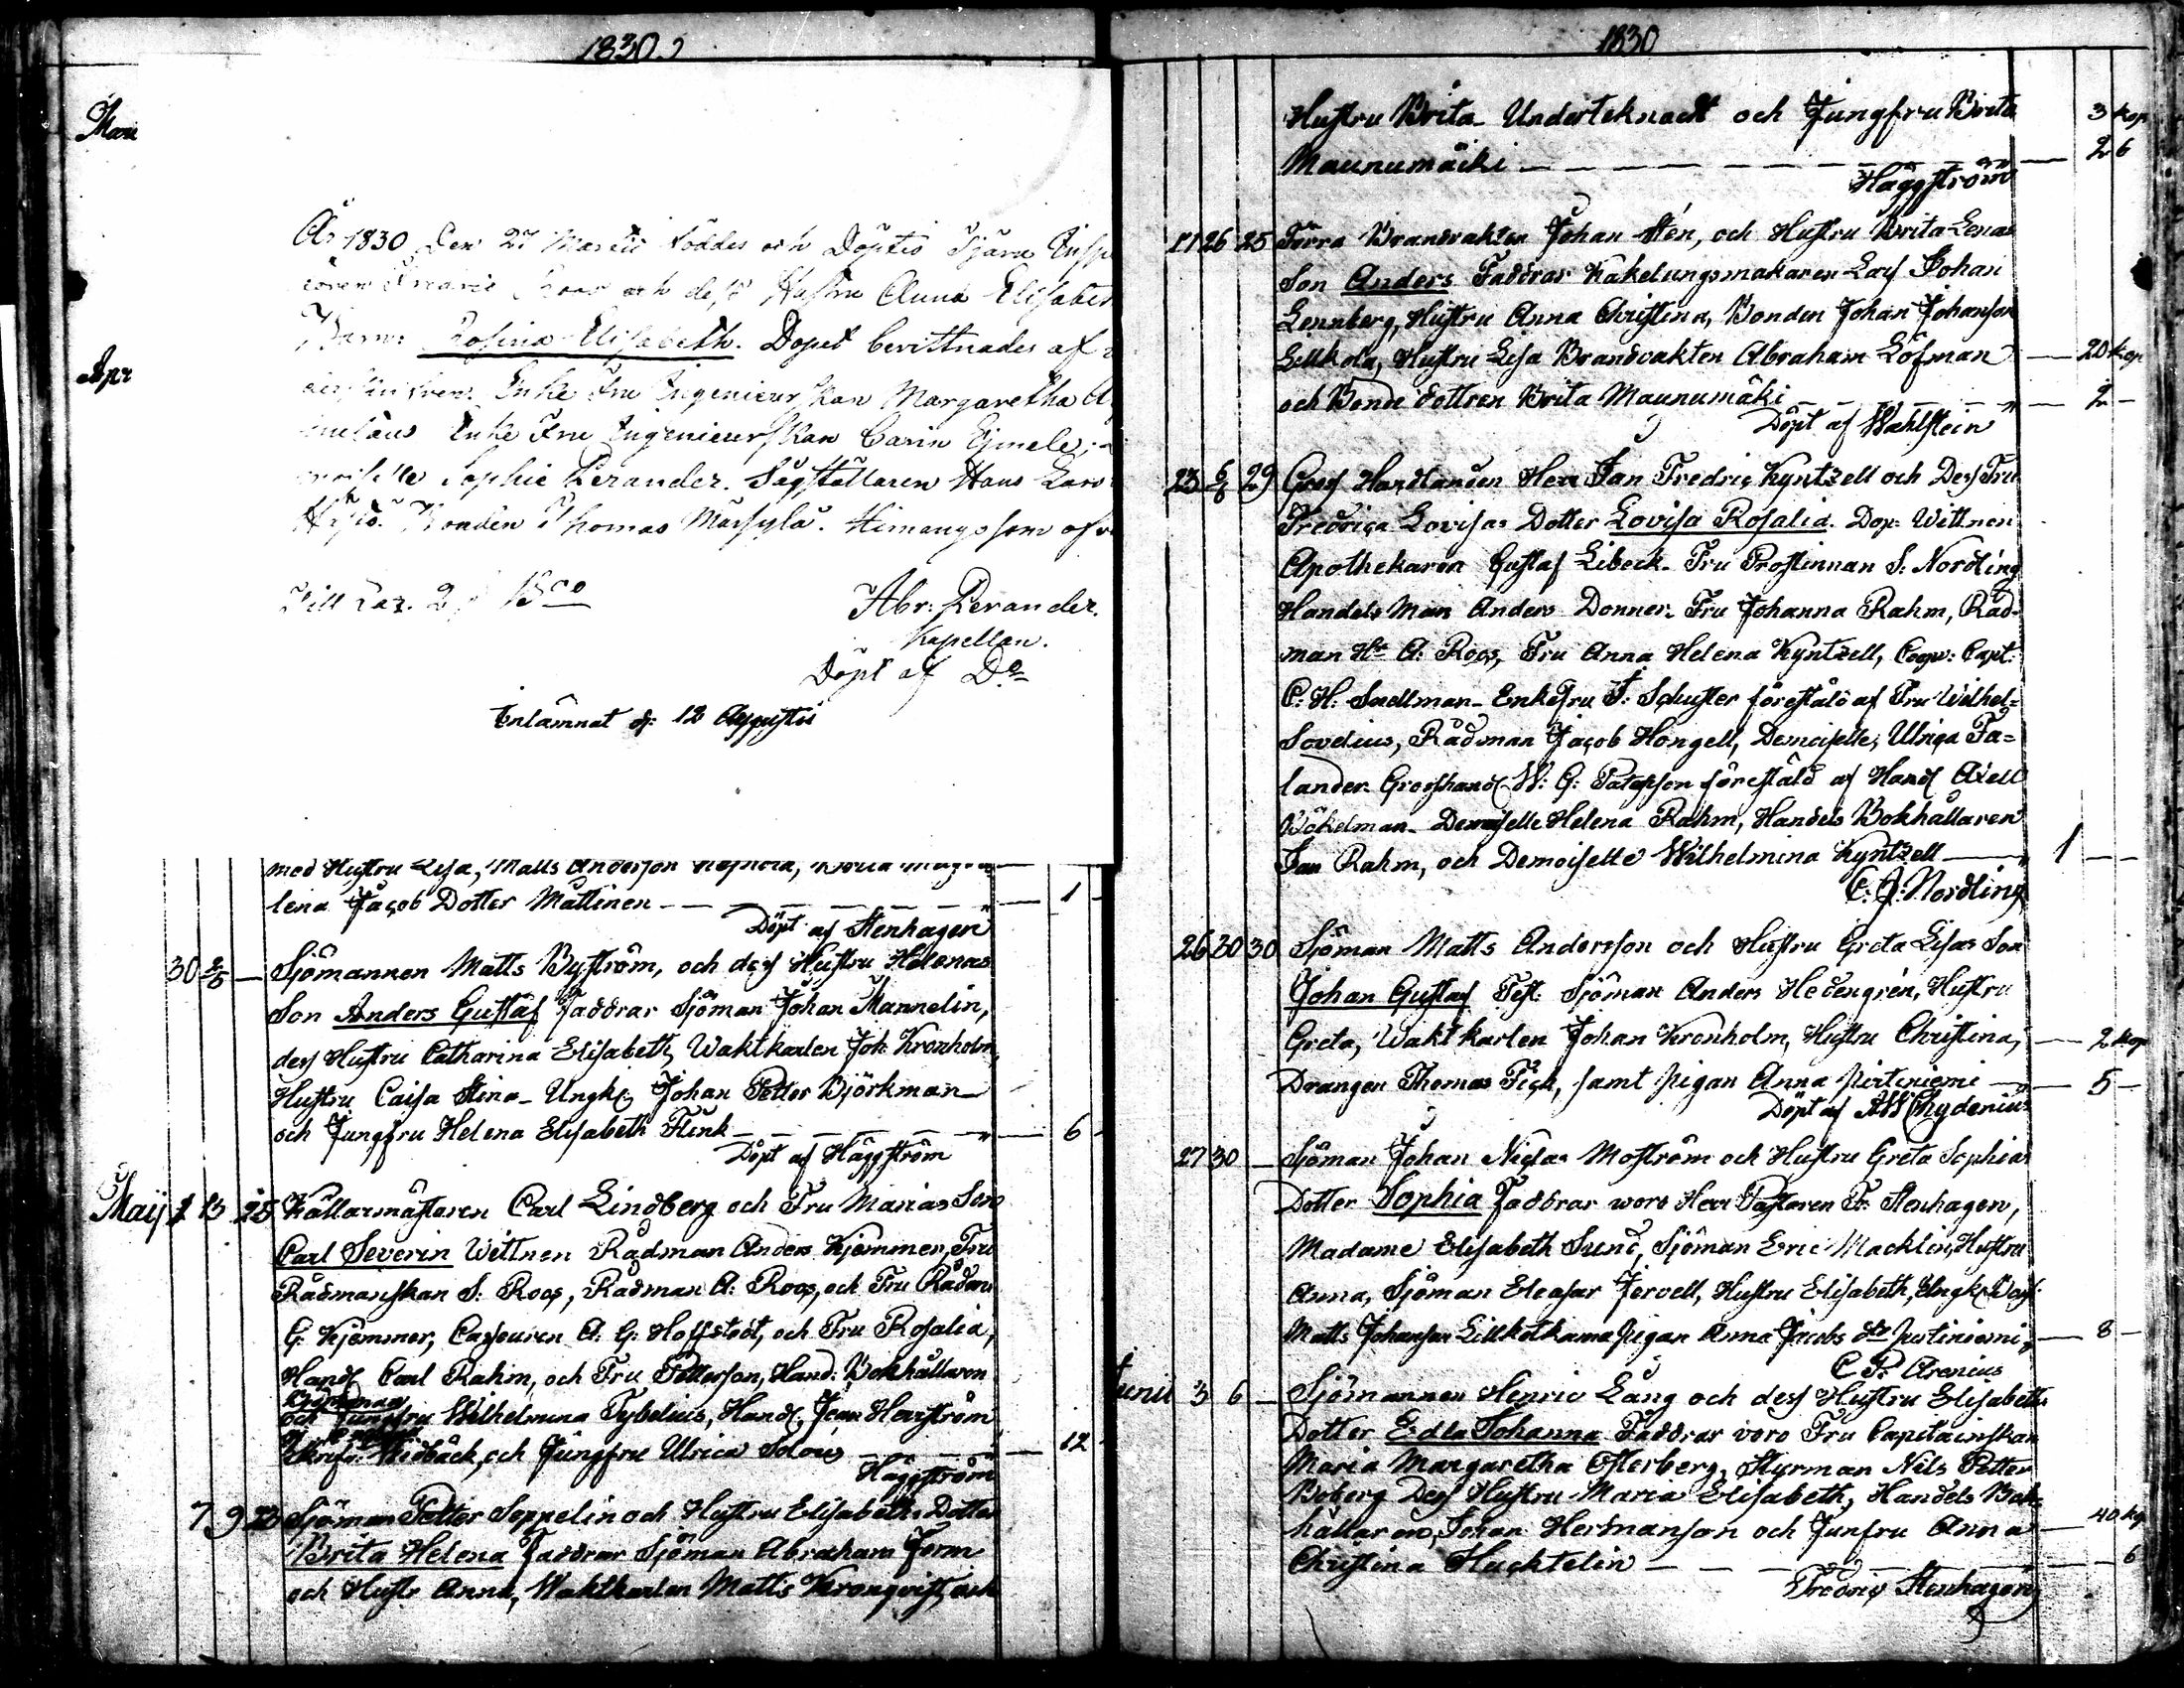 1830
Mar
Apr
År 1830 Den 27 Martii föddes och Döptes Tjäru
och dess Hustru Anna Elisabet
Barn: Rosina Elisabeth. Dopet bevittnades af
Enke Fru Ingenieurskan Margaretha
Enke Fru Ingenieurskan Carin
Sophie Perander. Sågställaren Hans
Bonden Thomas Märsylä. Himango som
Abr: Perander.
Kapellan.
Döpt af Do
Inlämnat d: 12 Augustii
med Hustru Lisa, Matts Anderson
lena Jacob Dotter Mattinen 1
Döpt af Stenhagen
30 2/5 — Sjömannen Matts Byström, och dess Hustru Helenas
Son Anders Gustaf Faddrar Sjöman Johan Mannelin,
dess Hustru Catharina Elisabeth, Waktkarlen Joh Kronholm,
Hustru Caisa Stina – Ungk: Johan Petter Björkman –
och Jungfru Helena Elisabeth Flink 6
Döpt af Häggström
Maij 1 13 25 Källarmästaren Carl Lindberg och Fru Marias Son
Carl Severin Wittnen Rådman Anders Kjemmer, Fru
Rådmanskan S: Roos, Rådman A: Roos, och Fru Rådm
G: Kjemmer, Casseuren A: G: Hoffstedt, och Fru Rosalia,
Handl Carl Rahm, och Fru Petterson, Hand: Bokhållaren
och Jungfru Wilhelmina Sybelius, Handl. Jean Herrström
Widbäck, och Jungfru Ulrica 12
Häggström
7 9 23 Sjöman Petter Seppelin och Hustru Elisabeths Dotter
Brita Helena Faddrar Sjöman Abraham Ferm
och Hustr Anna, Waktkarlen Matts Kronqvist, och
1830
Hustru Brita – Underteknadt och Jungfru Brita 3 kop
Maunumäki 2 6
Häggström
17 26 25 Förra Brandvakten Johan Stén, och Hustru Brita Lenas
Son Anders Faddrar Kakelungsmakaren Lars Johan
Lennberg, Hustru Anna Christina, Bonden Johan Johanson
Lillkola, Hustru Lisa Brandvakten Abraham Löfman 20 kop
och Bonde dottren Brita Maunumäki 2 –
Döpt af Wahlstein
23 6/6 29 Gross Handlanden Herr Jan Fredric Kyntzell och Dess Fru
Fredrica Lovisas Dotter Lovisa Rosalia. Dop: Wittnen
Apothekaren Gustaf Libeck. Fru Prostinnan S: Nordling
Handels Man Anders Donner. Fru Johanna Rahm, Råd-
man Hr A: Roos, Fru Anna Helena Kyntzell, Coop: Capt:
C: H: Snellman – Enkefru J: Schuster föreståld af Fru Wilhel=
Sovelius, Rådman Jacob Hongell, Demoiselle, Ulrica Fa=
lander. Grosshandl W: G: föreståld af Handl Axell
Wökelman – Demoiselle Helena Rahm, Handels Bokhållaren
Jan Rahm, och Demoiselle Wilhelmina Kyntzell 1 – –
C. J: Nordling
26 30 30 Sjöman Matts Andersson och Hustru Greta Lisas Son
Johan Gustaf Test: Sjöman Anders Hedengrén, Hustru
Greta, Waktkarlen Johan Kronholm, Hustru Christina, 2 kop
Drangen Thomas Fick, samt pigan Anna Pirtiniemi 5 –
Döpt af AW Chydenius
27 30 — Sjöman Johan Niclas Moström och Hustru Greta Sophias
Dotter Sophia Faddrar woro Herr Pastoren Fr: Stenhagen,
Madame Elisabeth Sund, Sjöman Eric Macklin, Hustru
Anna, Sjöman Eleasar Jervell, Hustru Elisabeth, Ungk:
Matts Johanson Lillkotkama pigan Anna Jacobs dr Pirtiniemi 8 –
C P: Arenius
Junii 3 6 — Sjömannen Henric Lång och dess Hustru Elisabeths
Dotter Edla Johanna Faddrar voro Fru Capitainskan
Maria Margaretha Österberg, Styrman Nils Petter
Boberg Dess Hustru Maria Elisabeth, Handels Bok-
hållaren, Johan Hermanson och Junfru Anna 40 kop
Christina Huchtelin 6
Fredric Stenhagen